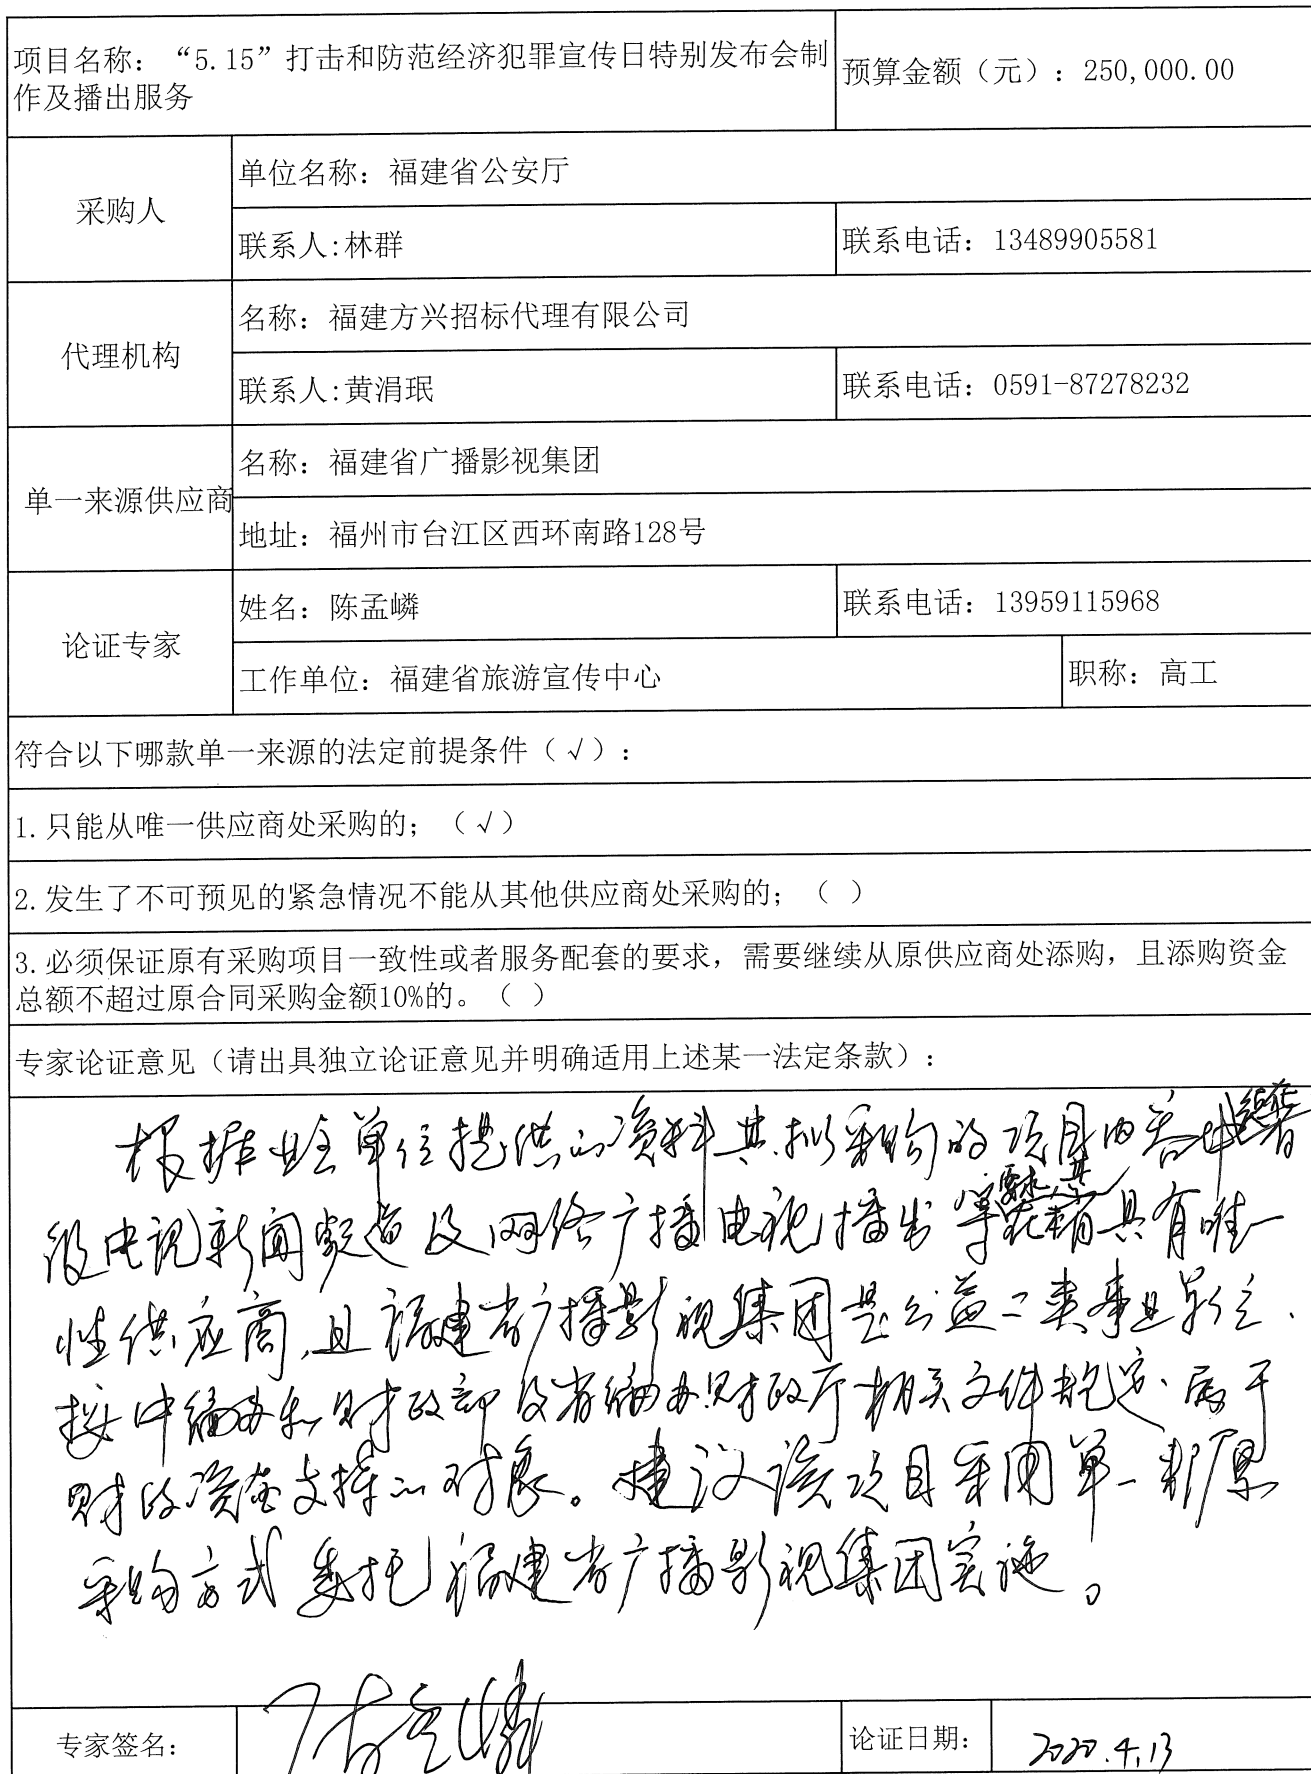 项目名称：“5.15”打击和防范经济犯罪宣传日特别发布会制
作及播出服务
预算金额（元）：250,000.00
采购人
单位名称：福建省公安厅
联系人:林群
联系电话：13489905581
代理机构
名称：福建方兴招标代理有限公司
联系人:黄涓珉
联系电话：0591-87278232
单一来源供应商
名称：福建省广播影视集团
地址：福州市台江区西环南路128号
论证专家
姓名：陈孟嶙
联系电话：13959115968
工作单位：福建省旅游宣传中心
职称：高工
符合以下哪款单一来源的法定前提条件（√）：
1.只能从唯一供应商处采购的；（√）
2.发生了不可预见的紧急情况不能从其他供应商处采购的；（ ）
3.必须保证原有采购项目一致性或者服务配套的要求，需要继续从原供应商处添购，且添购资金
总额不超过原合同采购金额10%的。（ ）
专家论证意见（请出具独立论证意见并明确适用上述某一法定条款）：
根据业主单位提供的资料其拟采购的项目内容 省
级电视新闻频道及网络广播电视播出等 要求 具有唯一
性供应商，且福建省广播影视集团是公益二类事业单位，
按中编办和财政部及省编办财政厅相关文件规定，属于
财政资金支持的对象。建议该项目采用单一来源
采购方式委托福建省广播影视集团实施。
专家签名：
陈孟嶙
论证日期：
2020.4.13